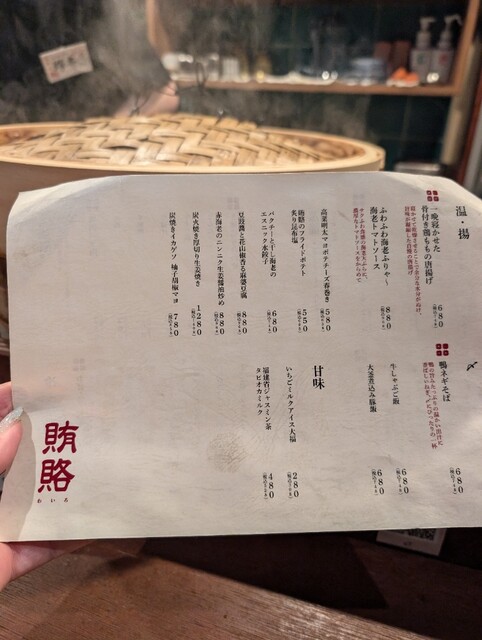 温・揚
一晩寝かせた
骨付き鶏ももの唐揚げ
680
ふわふわ海老ふりゃ〜
海老トマトソース
880
高菜明太マヨポテチーズ春巻き
580
賄賂のフライドポテト
炙り昆布塩
550
パクチーと干し海老の
エスニック水餃子
680
豆豉醬と花山椒香る麻婆豆腐
880
赤海老のニンニク生姜醬油炒め
880
炭火焼き厚切り生姜焼き
1280
炭焼きイカゲソ 柚子胡椒マヨ
780
〆
680
鴨ネギそば
鴨の旨みたっぷりの温かい出汁に
香ばしいねぎ。〆にぴったりの一杯
牛しゃぶご飯
680
大蒜煮込み豚飯
680
甘味
いちごミルクアイス大福
280
福建省ジャスミン茶
タピオカミルク
480
賄賂
わいろ